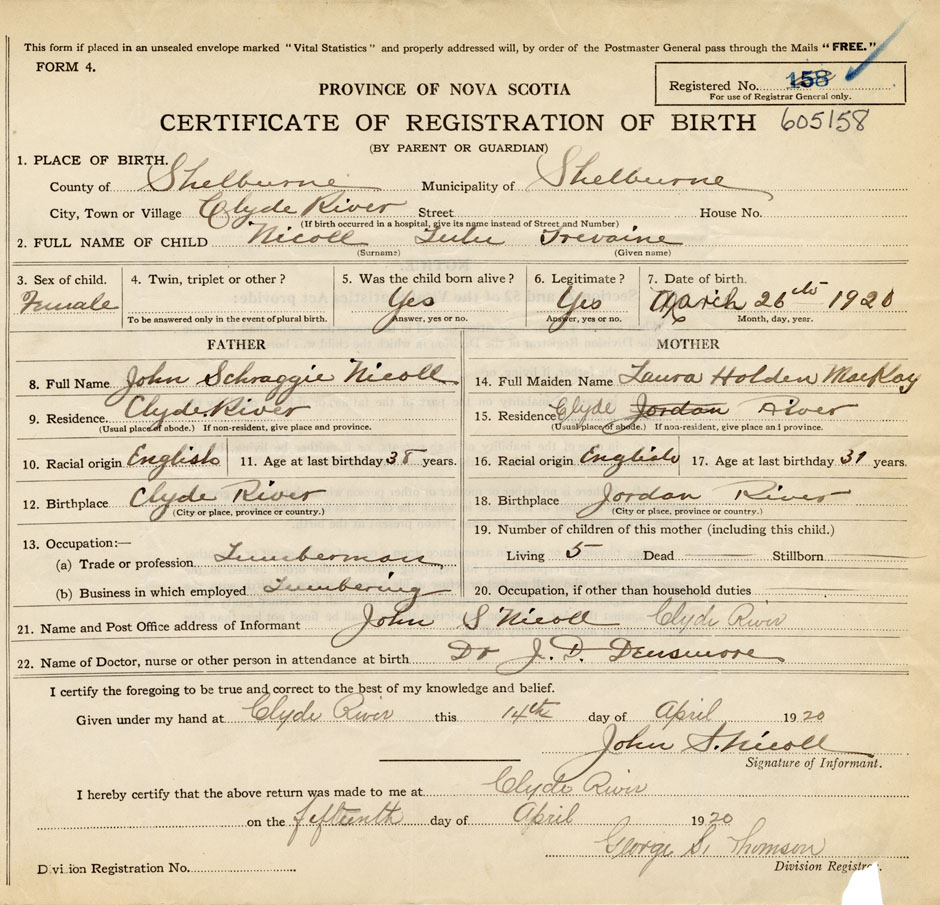 This form if placed in an unsealed envelope marked "Vital Statistics" and properly addressed will, by order of the Postmaster General pass through the Mails "FREE."
FORM 4.
Registered No. 158
For use of Registrar General only.
PROVINCE OF NOVA SCOTIA
CERTIFICATE OF REGISTRATION OF BIRTH 605158
(BY PARENT OR GUARDIAN)
1. PLACE OF BIRTH.
County of Shelburne Municipality of Shelburne
City, Town or Village Clyde River Street House No.
(If birth occurred in a hospital, give its name instead of Street and Number)
2. FULL NAME OF CHILD Nicoll Lulu Trevaine
(Surname) (Given name)
3. Sex of child. 4. Twin, triplet or other? 5. Was the child born alive? 6. Legitimate? 7. Date of birth.
Female Yes Yes March 26th 1920
To be answered only in the event of plural birth. Answer, yes or no. Answer, yes or no. Month, day, year.
FATHER MOTHER
8. Full Name John Schraggie Nicoll 14. Full Maiden Name Laura Holden MacKay
9. Residence Clyde River 15. Residence Clyde Jordan River
(Usual place of abode.) If non-resident, give place and province. (Usual place of abode.) If non-resident, give place and province.
10. Racial origin English 11. Age at last birthday 38 years. 16. Racial origin English 17. Age at last birthday 31 years.
12. Birthplace Clyde River 18. Birthplace Jordan River
(City or place, province or country.) (City or place, province or country.)
13. Occupation:— 19. Number of children of this mother (including this child.)
(a) Trade or profession Lumberman Living 5 Dead Stillborn
(b) Business in which employed Lumbering 20. Occupation, if other than household duties
21. Name and Post Office address of Informant John S Nicoll Clyde River
22. Name of Doctor, nurse or other person in attendance at birth Dr J. D. Densmore
I certify the foregoing to be true and correct to the best of my knowledge and belief.
Given under my hand at Clyde River this 14th day of April 1920
John S. Nicoll
Signature of Informant.
I hereby certify that the above return was made to me at Clyde River
on the fifteenth day of April 1920
George S. Thomson
Division Registration No. Division Registrar.